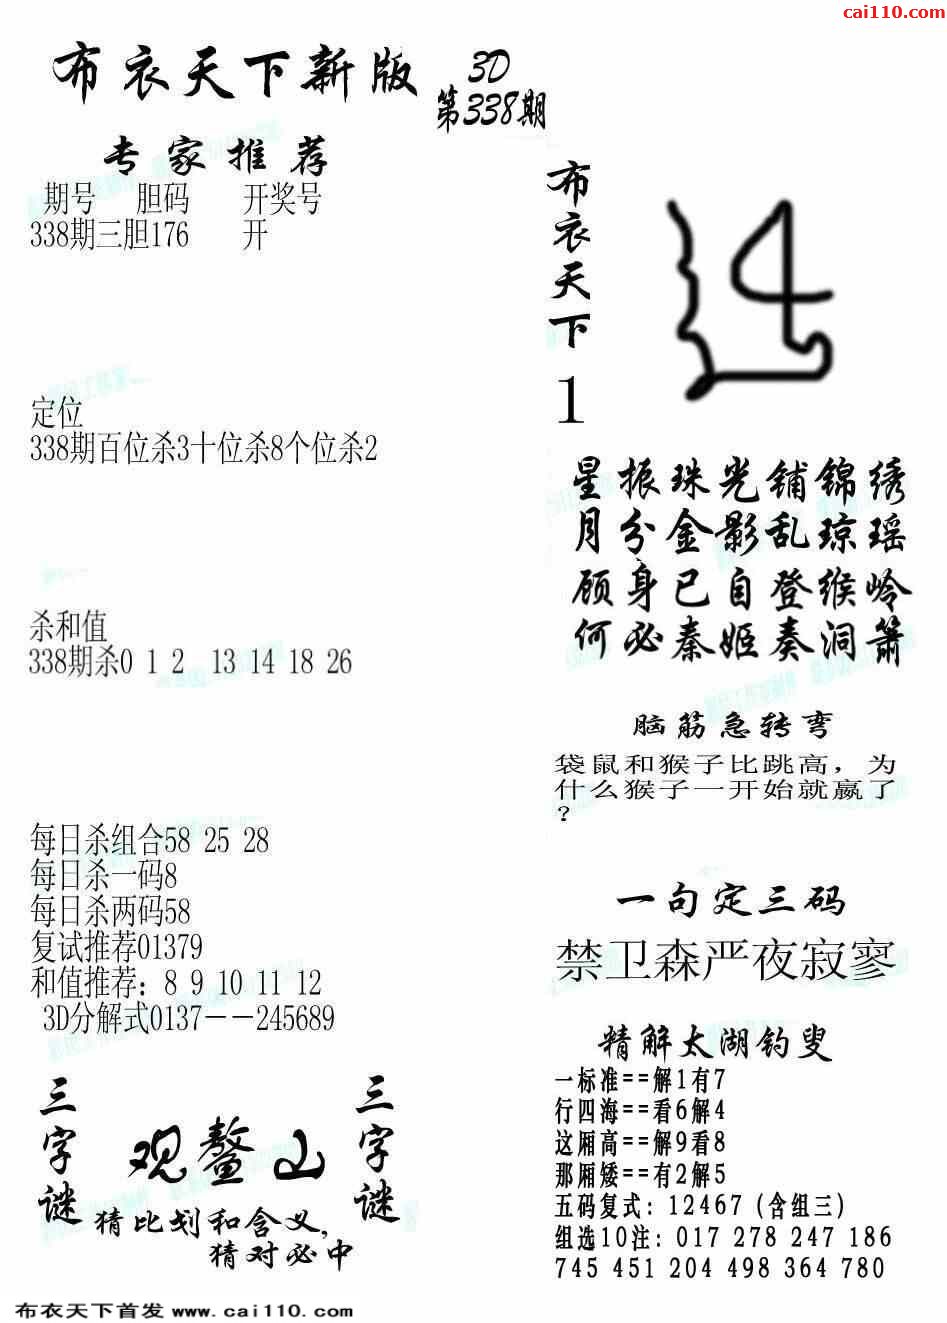 cai110.com
布衣天下新版
3D
第338期
专家推荐
期号 胆码 开奖号
338期三胆176 开
定位
338期百位杀3十位杀8个位杀2
杀和值
338期杀0 1 2 13 14 18 26
每日杀组合58 25 28
每日杀一码8
每日杀两码58
复试推荐01379
和值推荐：8 9 10 11 12
3D分解式0137－－245689
三字谜
观鳌山
三字谜
猜比划和含义，
猜对必中
布衣天下
1
星振珠光铺锦绣
月分金影乱琼瑶
顾身已自登缑岭
何必秦姬奏洞箫
脑筋急转弯
袋鼠和猴子比跳高，为
什么猴子一开始就赢了
？
一句定三码
禁卫森严夜寂寥
精解太湖钓叟
一标准==解1有7
行四海==看6解4
这厢高==解9看8
那厢矮==有2解5
五码复式：12467（含组三）
组选10注：017 278 247 186
745 451 204 498 364 780
布衣天下首发 www.cai110.com